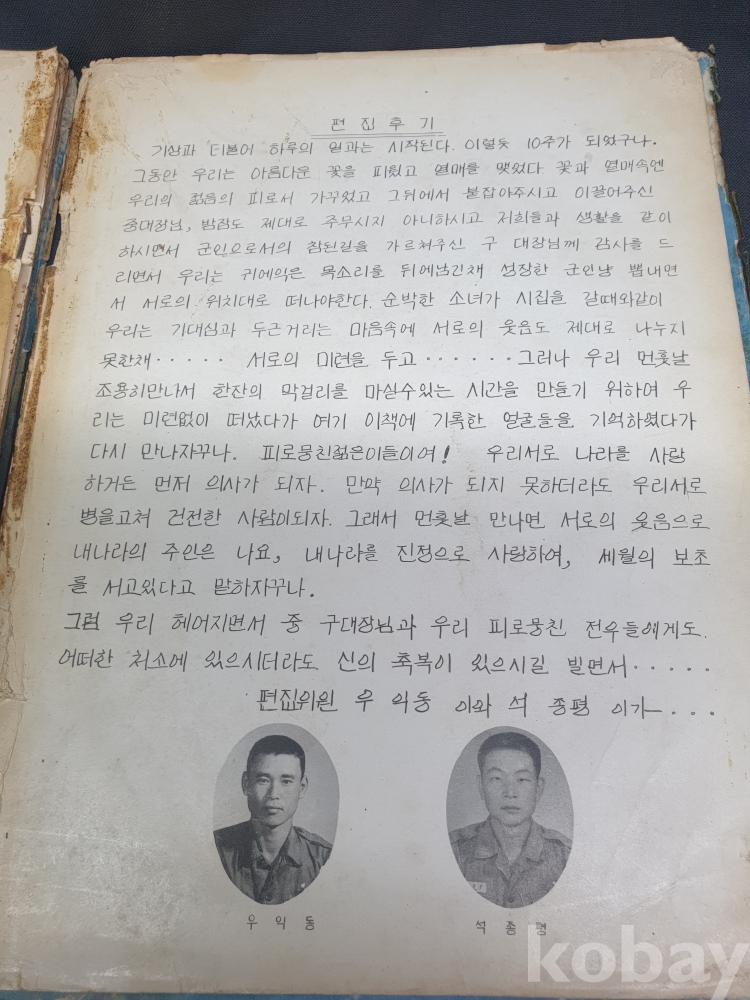 편집후기
기상과 더불어 하루의 일과는 시작된다. 이럴듯 10주가 되었구나.
그동안 우리는 아름다운 꽃을 피웠고 열매를 맺었다 꽃과 열매속엔
우리의 젊음의 피로서 가꾸었고 그뒤에서 붙잡아주시고 이끌어주신
중대장님, 밤잠도 제대로 주무시지 아니하시고 저희들과 생활을 같이
하시면서 군인으로서의 참된길을 가르쳐주신 구 대장님께 감사를 드
리면서 우리는 귀에익은 목소리를 뒤에남긴채 성장한 군인냥 뽐내면
서 서로의 위치대로 떠나야한다. 순박한 소녀가 시집을 갈때와같이
우리는 기대심과 두근거리는 마음속에 서로의 웃음도 제대로 나누지
못한채····· 서로의 미련을 두고······그러나 우리 먼훗날
조용히만나서 한잔의 막걸리를 마실수있는 시간을 만들기 위하여 우
리는 미련없이 떠났다가 여기 이책에 기록한 얼굴들을 기억하였다가
다시 만나자꾸나. 피로뭉친젊은이들이여! 우리서로 나라를 사랑
하거든 먼저 의사가 되자. 만약 의사가 되지 못하더라도 우리서로
병을고쳐 건전한 사람이되자. 그래서 먼훗날 만나면 서로의 웃음으로
내나라의 주인은 나요, 내나라를 진정으로 사랑하여, 세월의 보초
를 서고있다고 말하자꾸나.
그럼 우리 헤어지면서 중 구대장님과 우리 피로뭉친 전우들에게도.
어떠한 처소에 있으시더라도 신의 축복이 있으시길 빌면서·····
편집위원 우 익동 이와 석 종평 이가—···
우익동
석종평
kobay